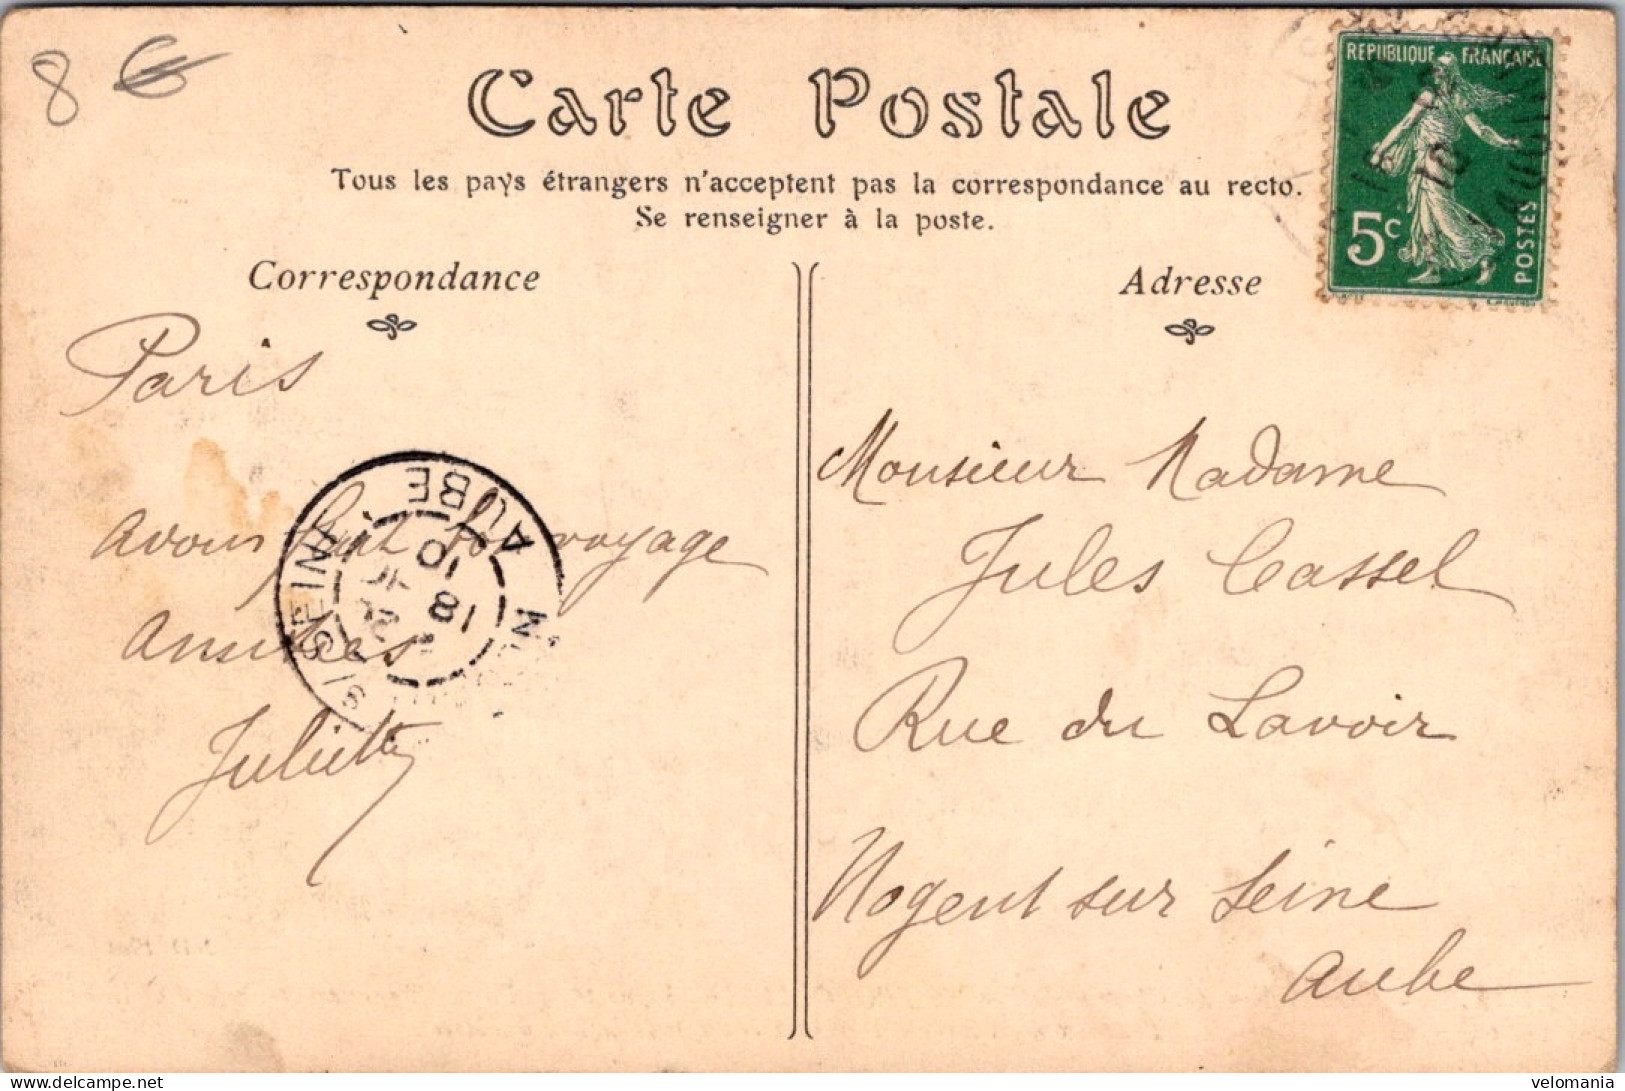 8 €
Carte Postale
Tous les pays étrangers n'acceptent pas la correspondance au recto.
Se renseigner à la poste.
REPUBLIQUE FRANÇAISE
5c
POSTES
Correspondance
Paris
avons fait bon voyage
Amitiés
Juliette
S/SEINE
AUBE
18
10
Adresse
Monsieur Madame
Jules Cassel
Rue du Lavoir
Nogent sur Seine
Aube
velomania